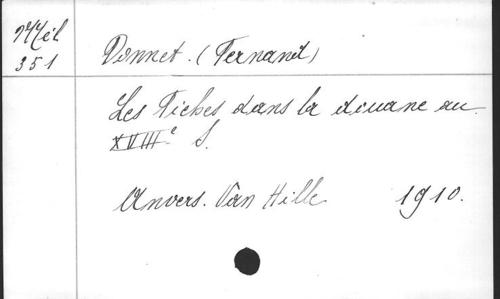 Mél
351
Donnet. (Fernand)
Les Fiches dans la douane au
XVIIIe S.
Anvers. Van Hille 1910.